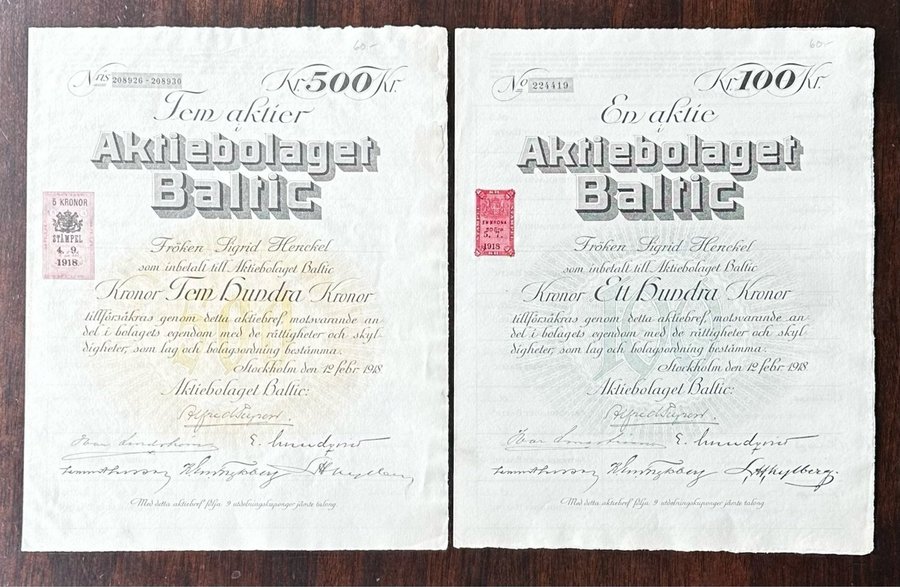 60.-
Nris 208926 - 208930
Kr. 500 Kr.
Fem aktier
i
Aktiebolaget
Baltic
5 KRONOR
STÄMPEL
4. 9.
1918
Fröken Sigrid Henckel
som inbetalt till Aktiebolaget Baltic
Kronor Fem Hundra Kronor
tillförsäkras genom detta aktiebref motsvarande an-
del i bolagets egendom med de rättigheter och skyl-
digheter, som lag och bolagsordning bestämma.
Stockholm den 12 febr. 1918
Aktiebolaget Baltic:
E. Lundqvist
Med detta aktiebref följa 9 utdelningskuponger jämte talong
60.-
No 224419
Kr. 100 Kr.
En aktie
i
Aktiebolaget
Baltic
EN KRONA
5. 1.
1918
Fröken Sigrid Henckel
som inbetalt till Aktiebolaget Baltic
Kronor Ett Hundra Kronor
tillförsäkras genom detta aktiebref motsvarande an-
del i bolagets egendom med de rättigheter och skyl-
digheter, som lag och bolagsordning bestämma.
Stockholm den 12 febr. 1918
Aktiebolaget Baltic:
E. Lundqvist
Med detta aktiebref följa 9 utdelningskuponger jämte talong